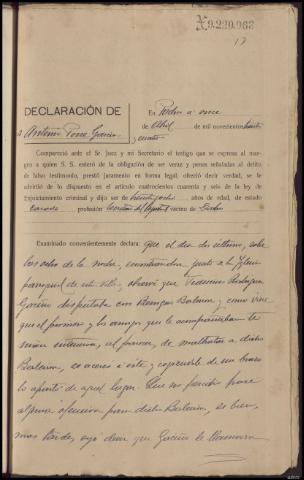 N.9.220.963
17
DECLARACIÓN DE
D. Antonio Ponce García
En Pedro a once
de Abril de mil novecientos treinta
y cuatro
Compareció ante el Sr. Juez y mi Secretario el testigo que se expresa al margen
a quien S. S. enteró de la obligación de ser veraz y penas señaladas al delito
de falso testimonio, prestó juramento en forma legal, ofreció decir verdad, se le
advirtió de lo dispuesto en el artículo cuatrocientos cuarenta y seis de la ley de
Enjuiciamiento criminal y dijo ser de treinta y ocho años de edad, de estado
casado profesión vecino de
Examinado convenientemente declara: Que el día dos último, sobre
las ocho de la noche, encontrándose junto a la Iglesia
parroquial de esta villa, observó que Federico Rodríguez
Gaciño disputaba con Balerum, y como viera
que el primero y los amigos que le acompañaban te-
nían intención, al parecer, de maltratar a dicho
Balerum, se acercó a éste y cogiéndole de un brazo
lo apartó de aquel lugar. Que no frase
alguna ofensiva para dicho Balerum, si bien,
mas tarde, oyó decir que Gaciño le llamara